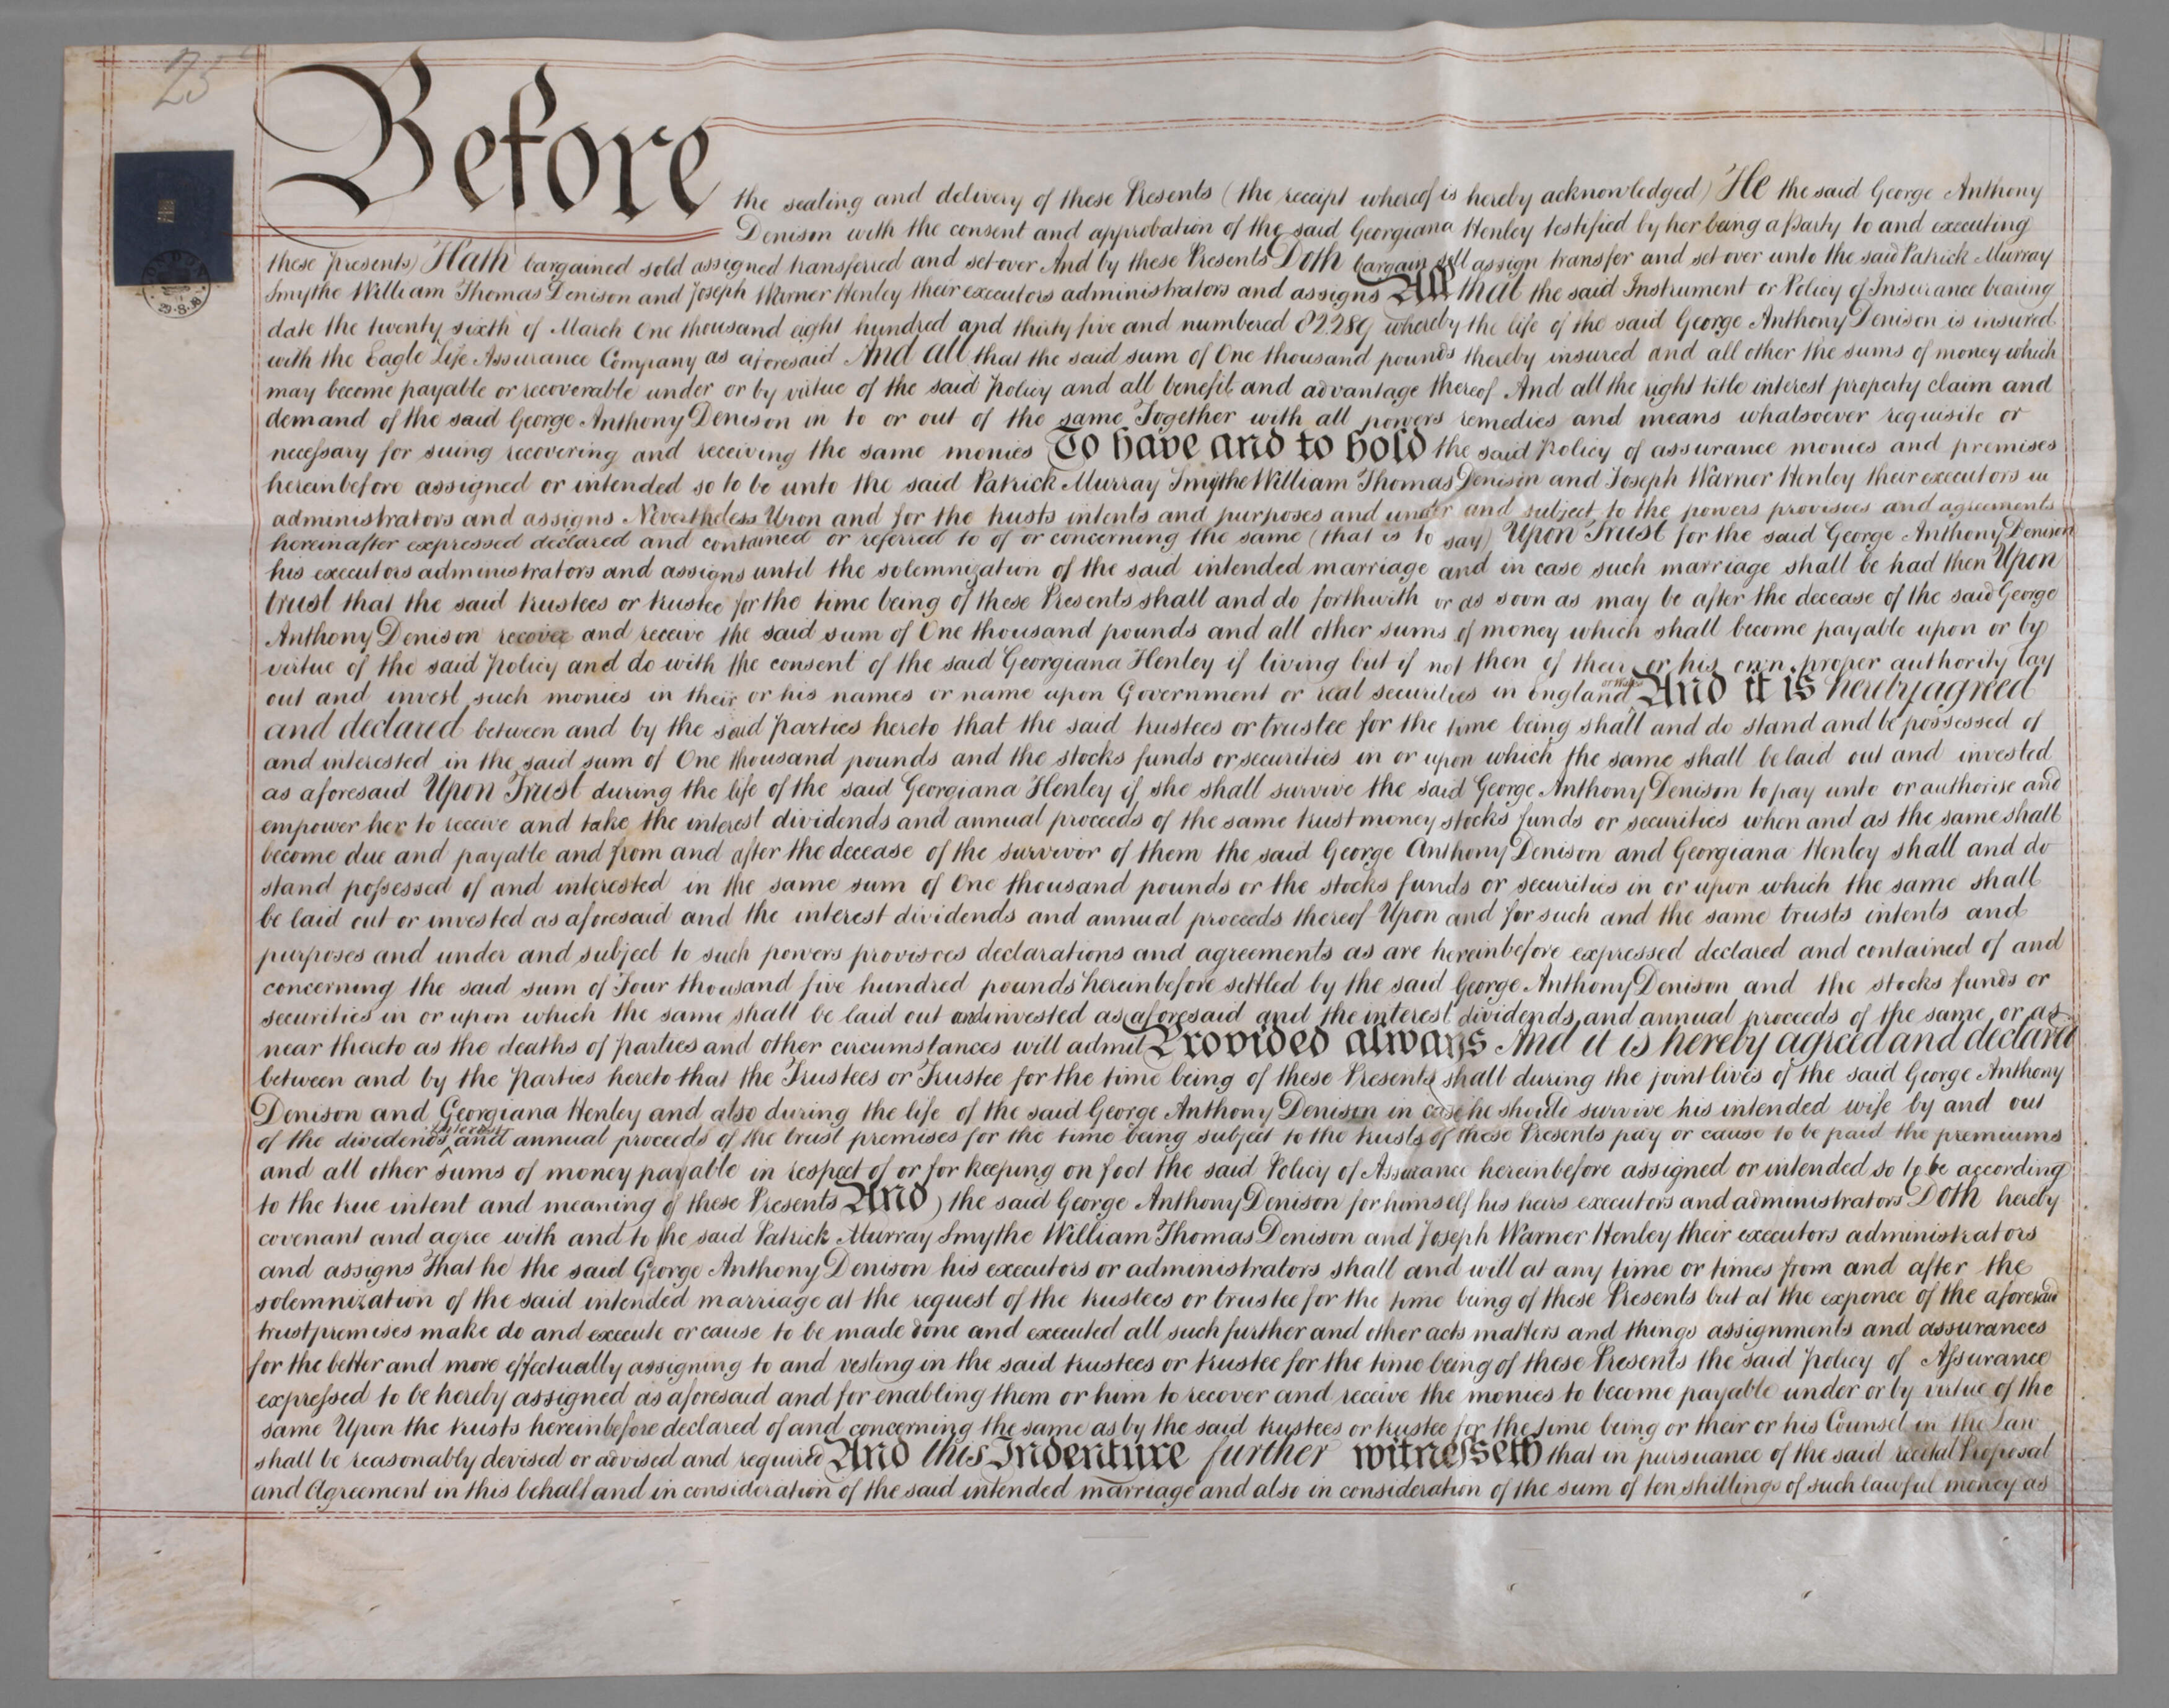 25
Before
the sealing and delivery of these Presents (the receipt whereof is hereby acknowledged) He the said George Anthony
Denison with the consent and approbation of the said Georgiana Henley testified by her being a Party to and executing
these Presents) Hath bargained sold assigned transferred and set over And by these Presents Doth bargain sell assign transfer and set over unto the said Patrick Murray
Smythe William Thomas Denison and Joseph Warner Henley their executors administrators and assigns All that the said Instrument or Policy of Insurance bearing
date the twenty sixth of March One thousand eight hundred and thirty five and numbered whereby the life of the said George Anthony Denison is insured
with the Eagle Life Assurance Company as aforesaid And all that the said sum of One thousand pounds thereby insured and all other the sums of money which
may become payable or recoverable under or by virtue of the said Policy and all benefit and advantage thereof And all the right title interest property claim and
demand of the said George Anthony Denison in to or out of the same Together with all powers remedies and means whatsoever requisite or
necessary for suing recovering and receiving the same monies To have and to hold the said Policy of assurance monies and premises
hereinbefore assigned or intended so to be unto the said Patrick Murray Smythe William Thomas Denison and Joseph Warner Henley their executors
administrators and assigns Nevertheless Upon and for the trusts intents and purposes and under and subject to the powers provisoes and agreements
hereinafter expressed declared and contained or referred to of or concerning the same (that is to say) Upon Trust for the said George Anthony Denison
his executors administrators and assigns until the solemnization of the said intended marriage and in case such marriage shall be had then Upon
trust that the said trustees or trustee for the time being of these Presents shall and do forthwith or as soon as may be after the decease of the said George
Anthony Denison recover and receive the said sum of One thousand pounds and all other sums of money which shall become payable upon or by
virtue of the said Policy and do with the consent of the said Georgiana Henley if living but if not then of their or his own proper authority lay
out and invest such monies in their or his names or name upon Government or real securities in England or Wales And it is hereby agreed
and declared between and by the said Parties hereto that the said trustees or trustee for the time being shall and do stand and be possessed of
and interested in the said sum of One thousand pounds and the stocks funds or securities in or upon which the same shall be laid out and invested
as aforesaid Upon Trust during the life of the said Georgiana Henley if she shall survive the said George Anthony Denison to pay unto or authorise and
empower her to receive and take the interest dividends and annual proceeds of the same trust money stocks funds or securities when and as the same shall
become due and payable and from and after the decease of the survivor of them the said George Anthony Denison and Georgiana Henley shall and do
stand possessed of and interested in the same sum of One thousand pounds or the stocks funds or securities in or upon which the same shall
be laid out or invested as aforesaid and the interest dividends and annual proceeds thereof Upon and for such and the same trusts intents and
purposes and under and subject to such powers provisoes declarations and agreements as are hereinbefore expressed declared and contained of and
concerning the said sum of Four thousand five hundred pounds hereinbefore settled by the said George Anthony Denison and the stocks funds or
securities in or upon which the same shall be laid out and invested as aforesaid and the interest dividends and annual proceeds of the same or as
near thereto as the deaths of parties and other circumstances will admit Provided always And it is hereby agreed and declared
between and by the Parties hereto that the Trustees or Trustee for the time being of these Presents shall during the joint lives of the said George Anthony
Denison and Georgiana Henley and also during the life of the said George Anthony Denison in case he should survive his intended wife by and out
of the dividends interest and annual proceeds of the trust premises for the time being subject to the trusts of these Presents pay or cause to be paid the premiums
and all other sums of money payable in respect of or for keeping on foot the said Policy of Assurance hereinbefore assigned or intended so to be according
to the true intent and meaning of these Presents And the said George Anthony Denison for himself his heirs executors and administrators Doth hereby
covenant and agree with and to the said Patrick Murray Smythe William Thomas Denison and Joseph Warner Henley their executors administrators
and assigns That he the said George Anthony Denison his executors or administrators shall and will at any time or times from and after the
solemnization of the said intended marriage at the request of the trustees or trustee for the time being of these Presents but at the expence of the aforesaid
trust premises make do and execute or cause to be made done and executed all such further and other acts matters and things assignments and assurances
for the better and more effectually assigning to and vesting in the said trustees or trustee for the time being of these Presents the said Policy of Assurance
expressed to be hereby assigned as aforesaid and for enabling them or him to recover and receive the monies to become payable under or by virtue of the
same Upon the trusts hereinbefore declared of and concerning the same as by the said trustees or trustee for the time being or their or his Counsel in the Law
shall be reasonably devised or advised and required And this Indenture further witnesseth that in pursuance of the said recited Proposal
and Agreement in this behalf and in consideration of the said intended marriage and also in consideration of the sum of ten shillings of such lawful money as